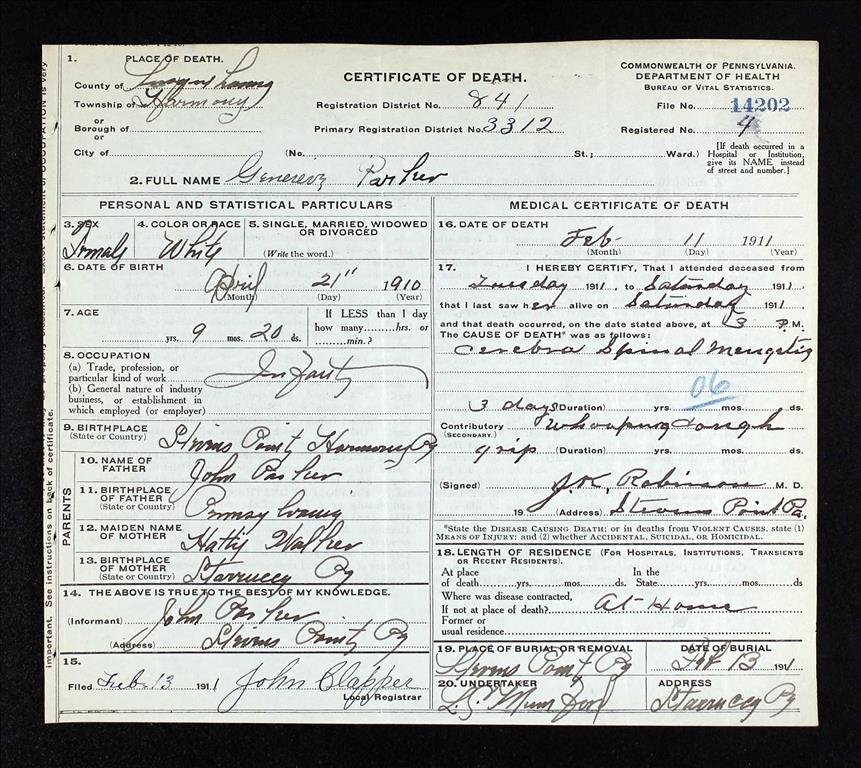 1. PLACE OF DEATH.
County of
Township of Harmony
or
Borough of
or
City of
CERTIFICATE OF DEATH.
Registration District No. 841
Primary Registration District No. 3312
(No. St.; Ward.)
COMMONWEALTH OF PENNSYLVANIA.
DEPARTMENT OF HEALTH
BUREAU OF VITAL STATISTICS.
File No. 14202
Registered No. 4
[If death occurred in a
Hospital or Institution,
give its NAME instead
of street and number.]
2. FULL NAME Parker
PERSONAL AND STATISTICAL PARTICULARS
3. SEX
Female
4. COLOR OR RACE
White
5. SINGLE, MARRIED, WIDOWED
OR DIVORCED
(Write the word.)
6. DATE OF BIRTH
April 21" 1910
(Month) (Day) (Year)
7. AGE
yrs. 9 mos. 20 ds.
If LESS than 1 day
how many hrs. or
min.?
8. OCCUPATION
(a) Trade, profession, or
particular kind of work
(b) General nature of industry
business, or establishment in
which employed (or employer)
9. BIRTHPLACE
(State or Country) Harmony
PARENTS
10. NAME OF
FATHER John Parker
11. BIRTHPLACE
OF FATHER
(State or Country)
12. MAIDEN NAME
OF MOTHER Walker
13. BIRTHPLACE
OF MOTHER
(State or Country) Starrucca
14. THE ABOVE IS TRUE TO THE BEST OF MY KNOWLEDGE.
(Informant) John Parker
(Address)
15.
Filed Feb 13 1911 John Clapper
Local Registrar
MEDICAL CERTIFICATE OF DEATH
16. DATE OF DEATH
Feb 11 1911
(Month) (Day) (Year)
17. I HEREBY CERTIFY, That I attended deceased from
Tuesday 1911, to Saturday 1911,
that I last saw her alive on Saturday 1911
and that death occurred, on the date stated above, at 3 P.M.
The CAUSE OF DEATH* was as follows:
Cerebra Spinal
06
3 days (Duration) yrs. mos. ds.
Contributory Whooping Cough
(SECONDARY.)
grip (Duration) yrs. mos. ds.
(Signed) J.K. Robinson M. D.
19 (Address) Stevens Point Pa.
*State the DISEASE CAUSING DEATH; or in deaths from VIOLENT CAUSES, state (1)
MEANS OF INJURY; and (2) whether ACCIDENTAL, SUICIDAL, OR HOMICIDAL.
18. LENGTH OF RESIDENCE (FOR HOSPITALS, INSTITUTIONS, TRANSIENTS
OR RECENT RESIDENTS).
At place In the
of death yrs. mos. ds. State yrs. mos. ds
Where was disease contracted,
If not at place of death? At Home
Former or
usual residence
19. PLACE OF BURIAL OR REMOVAL
DATE OF BURIAL
Feb 13 191
20. UNDERTAKER
ADDRESS
important. See instructions on back of certificate.